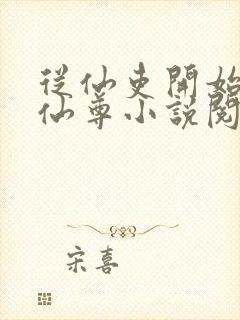 從仙吏開始
仙尊小說閱
宋喜